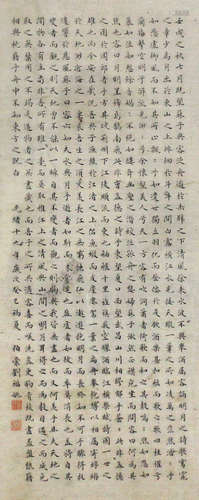 壬戌之秋七月既望蘇子與客泛舟遊於赤壁之下清風徐來水波不興舉酒屬客誦明月之詩歌窈窕
之章少焉月出於東山之上徘徊於斗牛之間白露橫江水光接天縱一葦之所如凌萬頃之茫然浩浩
乎如馮虛御風而不知其所止飄飄乎如遺世獨立羽化而登仙於是飲酒樂甚扣舷而歌之歌曰桂棹兮
蘭槳擊空明兮泝流光渺渺兮予懷望美人兮天一方客有吹洞簫者倚歌而和之其聲嗚嗚然如怨如
慕如泣如訴餘音嫋嫋不絕如縷舞幽壑之潛蛟泣孤舟之嫠婦蘇子愀然正襟危坐而問客曰何為其
然也客曰月明星稀烏鵲南飛此非曹孟德之詩乎西望夏口東望武昌山川相繆鬱乎蒼蒼此非孟德
之困於周郎者乎方其破荊州下江陵順流而東也舳艫千里旌旗蔽空釃酒臨江橫槊賦詩固一世之
雄也而今安在哉況吾與子漁樵於江渚之上侶魚蝦而友麋鹿駕一葉之扁舟舉匏樽以相屬寄蜉蝣
於天地渺滄海之一粟哀吾生之須臾羨長江之無窮挾飛仙以遨遊抱明月而長終知不可乎驟得託
遺響於悲風蘇子曰客亦知夫水與月乎逝者如斯而未嘗往也盈虛者如彼而卒莫消長也蓋將自其
變者而觀之則天地曾不能以一瞬自其不變者而觀之則物與我皆無盡也而又何羨乎且夫天地之
間物各有主苟非吾之所有雖一毫而莫取惟江上之清風與山間之明月耳得之而為聲目遇之而成
色取之無禁用之不竭是造物者之無盡藏也而吾與子之所共適客喜而笑洗盞更酌肴核既盡杯盤狼藉
相與枕藉乎舟中不知東方之既白 光緒十九年歲次癸巳初夏 伯崇劉福姚